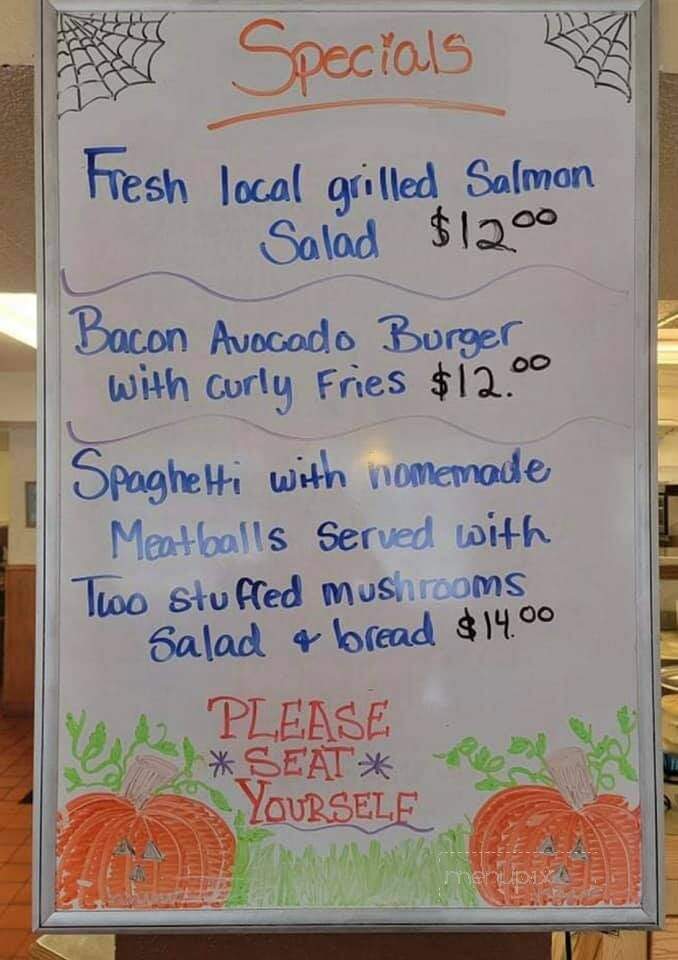 Specials
Fresh local grilled Salmon
Salad $12.00
Bacon Avocado Burger
with curly Fries $12.00
Spaghetti with homemade
Meatballs Served with
Two stuffed mushrooms
Salad + bread $14.00
PLEASE
* SEAT *
YOURSELF
menupix